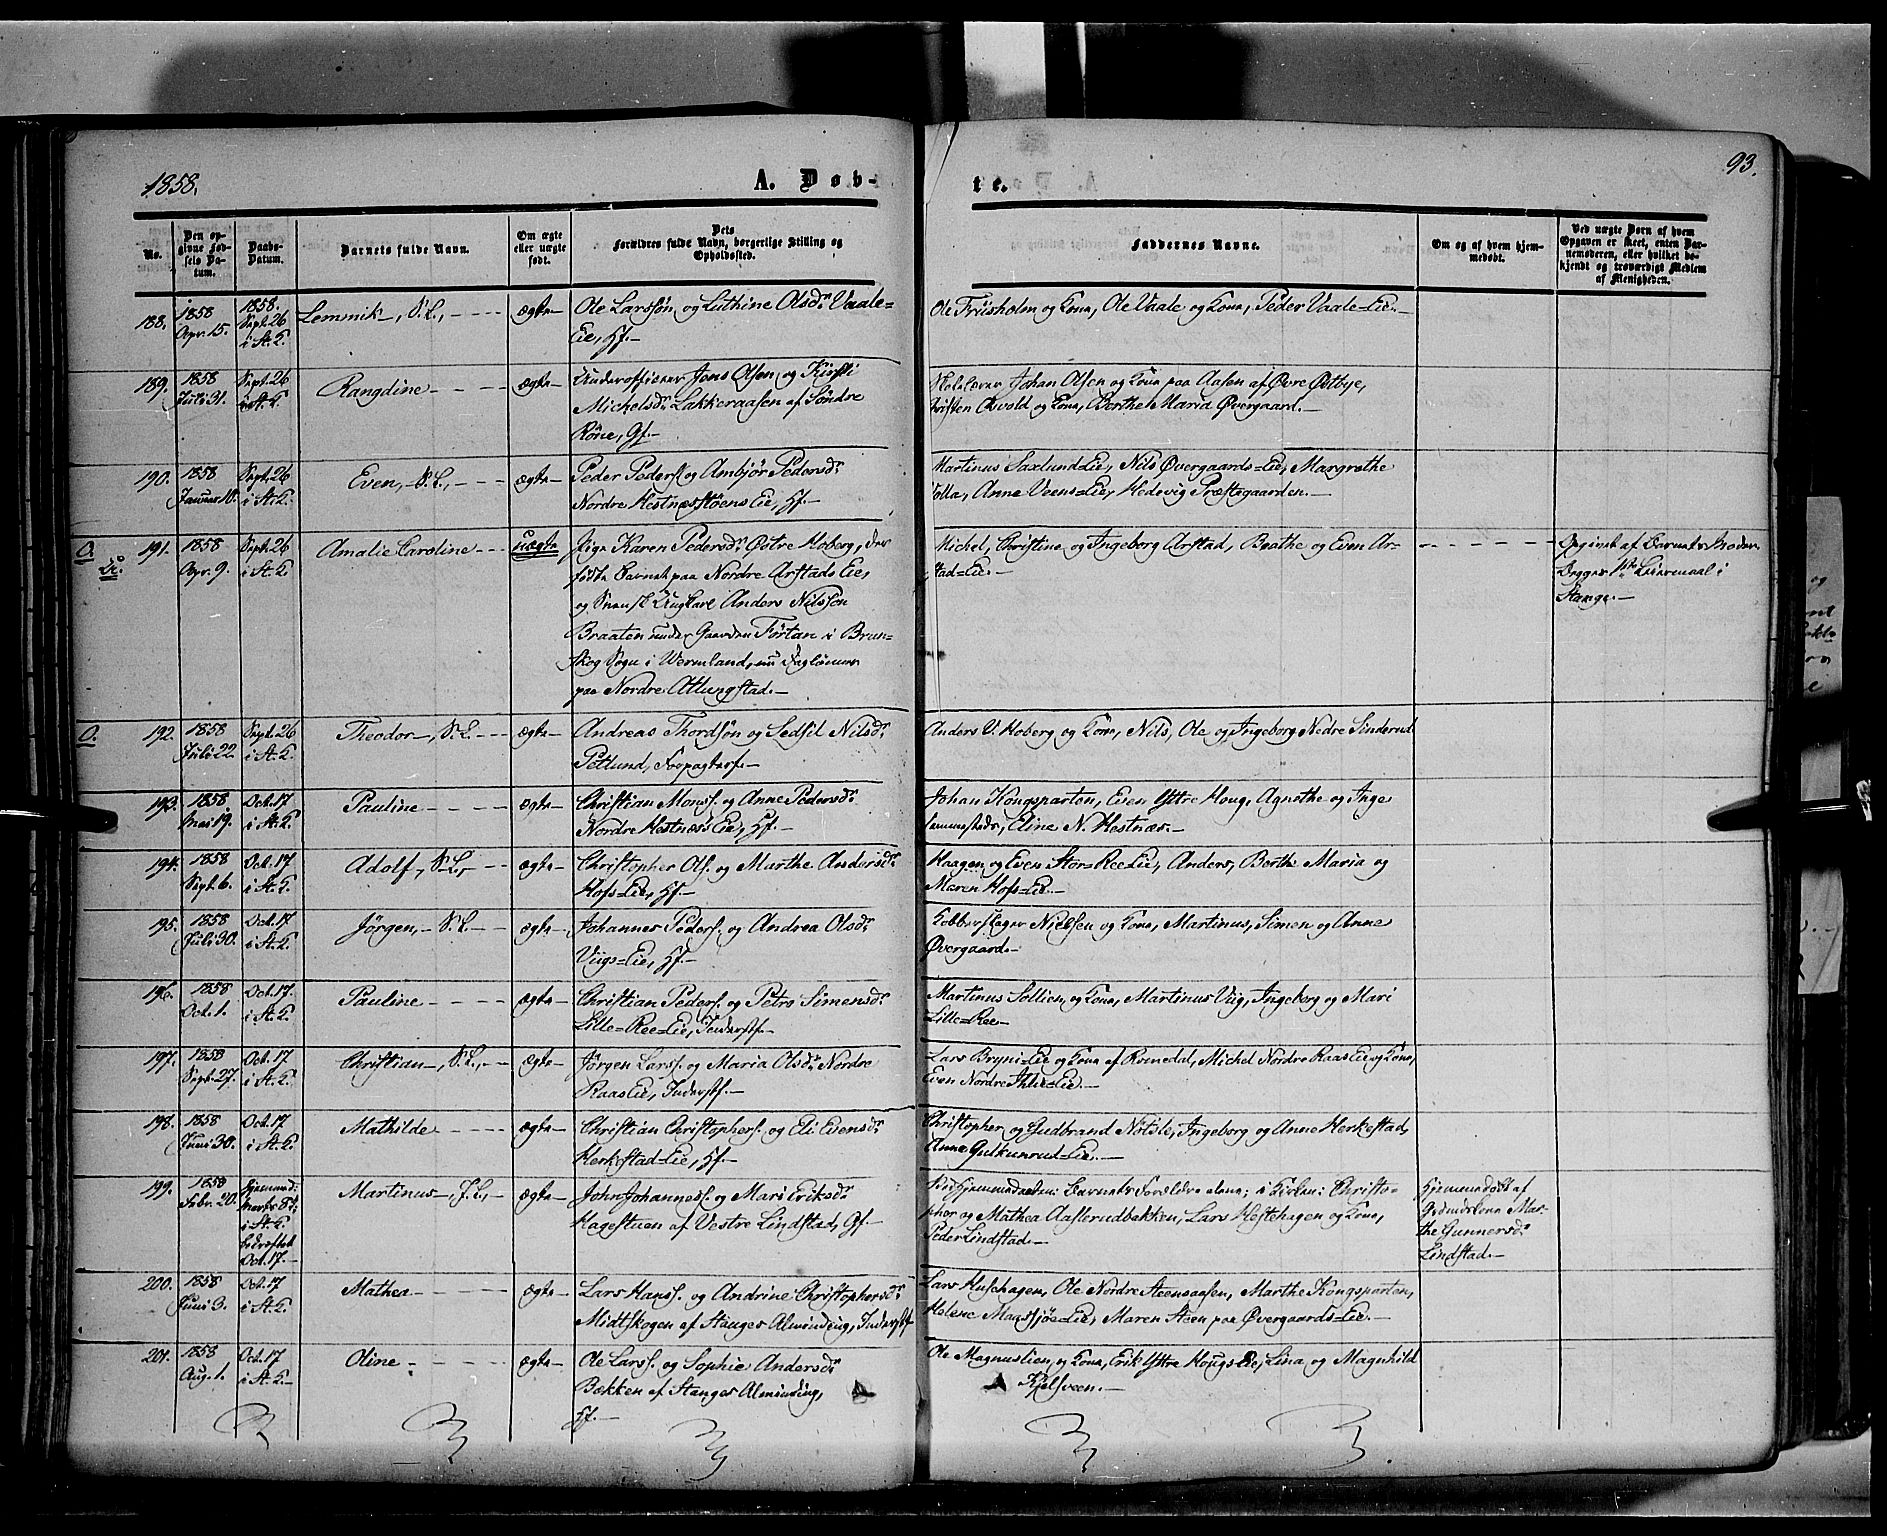 1858.
A. Døb-
te.
93.
No.
Den op-
givne Fød-
sels Da-
tum.
Daabs-
Datum.
Barnets fulde Navn.
Om ægte
eller uægte
født.
Dets
Forældres fulde Navn, borgerlige Stilling og
Opholdssted.
Faddernes Navne.
Om og af hvem hjem-
medøbt.
Ved uægte Børn af hvem
Opgaven er skeet, enten Bar-
nemoderen, eller hvilket be-
kjendt og troværdigt Medlem
af Menigheden.
188. 1858 Apr. 15. 1858. Sept. 26 i St. K. Lemmik, S.L., ægte
Ole Larssøn og Luthine Olsd. Vaale-
Eie, Hf.
Ole Friisholm og Kona, Ole Vaale og Kona, Peder Vaale-Eie.
189. 1858 Juli 31. Sept. 26 i St. K. Rangdine ægte
Underofficeer Jens Olsen og Kirsti
Mickelsd. Lakkeraasen af Søndre
Røne, Gf.
Johan Olsen og Kona paa Aasen af Øvre Østbye,
Osvold og Kona, Berthe Maria Øvergaard.
190. 1858 Januar 10. Sept. 26 i St. K. Even, S.L., ægte
Peder Peders. og Ambjør Pedersd.
Nordre Hestnæsstøens Eie, Hf.
Martinus Saxlund-Eie, Nils Øvergaards-Eie, Margrethe
Tolla, Anne Veens-Eie, Hedevig Præstegaarden.
O. 191. 1858 Apr. 9. Sept. 26 i St. K. Amalie Caroline uægte
Pige Karen Pedersd. Østre Hoberg, der
fødte Barnet paa Nordre Arstads Eie,
og Svensk Ungkarl Anders Nilsson
Braaten under Gaarden Førtan i Brun-
skog Sogn i Wermland, nu Daglønner
paa Nordre Atlungstad.
Michel, Christine og Ingeborg Arstad, Beathe og Even Ar-
stad-Eie.
Opgivet af Barnets Moder.
Begges 1ste Leiermaal i
Stange.
O. 192. 1858 Juli 22. Sept. 26 i St. K. Theodor, S.L. ægte
Andreas Thordsøn og Sedsil Nilsd.
Petlund, Forpagterf.
Anders V. Hoberg og Kona, Nils, Ole og Ingeborg Nedre Sinderud
193. 1858. Mai 19. Oct. 17 i St. K. Pauline ægte
Christian Mons. og Anne Pedersd.
Nordre Hestnæs Eie, Hf.
Johan Kongsparten, Even Yttre Houg, Agnethe og Inge
Eline N. Hestnæs.
194. 1858 Sept. 6. Oct. 17 i St. K. Adolf, S.L., ægte
Christopher Ols. og Marthe Andersd.
Hofs-Eie, Hf.
Haagen og Even Stor-Ree-Eie, Anders, Berthe Maria og
Maren Hofs-Eie.
195. 1858 Juli 30. Oct. 17 i St. K. Jørgen, S.L. ægte
Johannes Peders. og Andrea Olsd.
Viigs-Eie, Hf.
Kobberslager Nielsen og Kona, Martinus, Simen og Anne
Øvergaard.
196. 1858 Oct. 1. Oct. 17. i St. K. Pauline ægte
Christian Peders. og Petro Simensd.
Lille-Ree-Eie, Inderstf.
Martinus Sollien, og Kona, Martinus Viig, Ingeborg og Mari
Lille-Ree
197. 1858 Sept. 27. Oct. 17 i St. K. Christian, S.L., ægte
Jørgen Lars. og Maria Olsd. Nordre
Raas Eie, Inderstf.
Lars Bryni-Eie og Kona af Romedal, Michel Nordre Raas Eie og Kona,
Even Nordre
198. 1858 Juni 30. Oct. 17 i St. K. Mathilde ægte
Christian Christophers. og Eli Evensd.
Herkestad-Eie, Hf.
Christopher og Gudbrand Nøtsle, Ingeborg og Anne Herkestad,
Anne Gukunrud-Eie.
199. 1858 Febr. 20. Hjemmed. Marts 8d. i St. K. bekræftet Oct. 17. Martinus, J.L., ægte
John Johannes. og Mari Eriksd.
Hagestuen af Vestre Lindstad, Gf.
Ved Hjemmedaaben: Barnets Forældre alene; i Kirken: Christo-
pher og Mathea Aaslerudbakken, Lars Hestehagen og Kona,
Peder Lindstad.
Hjemmedøbt af
Gaardmandskona Mar-
the Gunnersd.
Lindstad.
200. 1858 Juni 3. Oct. 17 i St. K. Mathea ægte
Lars Hans. og Andrine Christophersd.
Midtskogen af Stanges Alminding, Inderstf.
Lars Huschagen, Ole Nordre Steensaasen, Marthe Kongsparten,
Helene Maasjøe-Eie, Maren Steen paa Øvergaards-Eie.
201. 1858 Aug. 1. Oct. 17 i St. K. Oline ægte
Ole Lars. og Sophie Andersd.
Bækken af Stanges Alminding,
Hf.
Ole Magnuslien, og Kona, Erik Yttre Hougs-Eie, Lina og Magnhild
Kjelsveen.